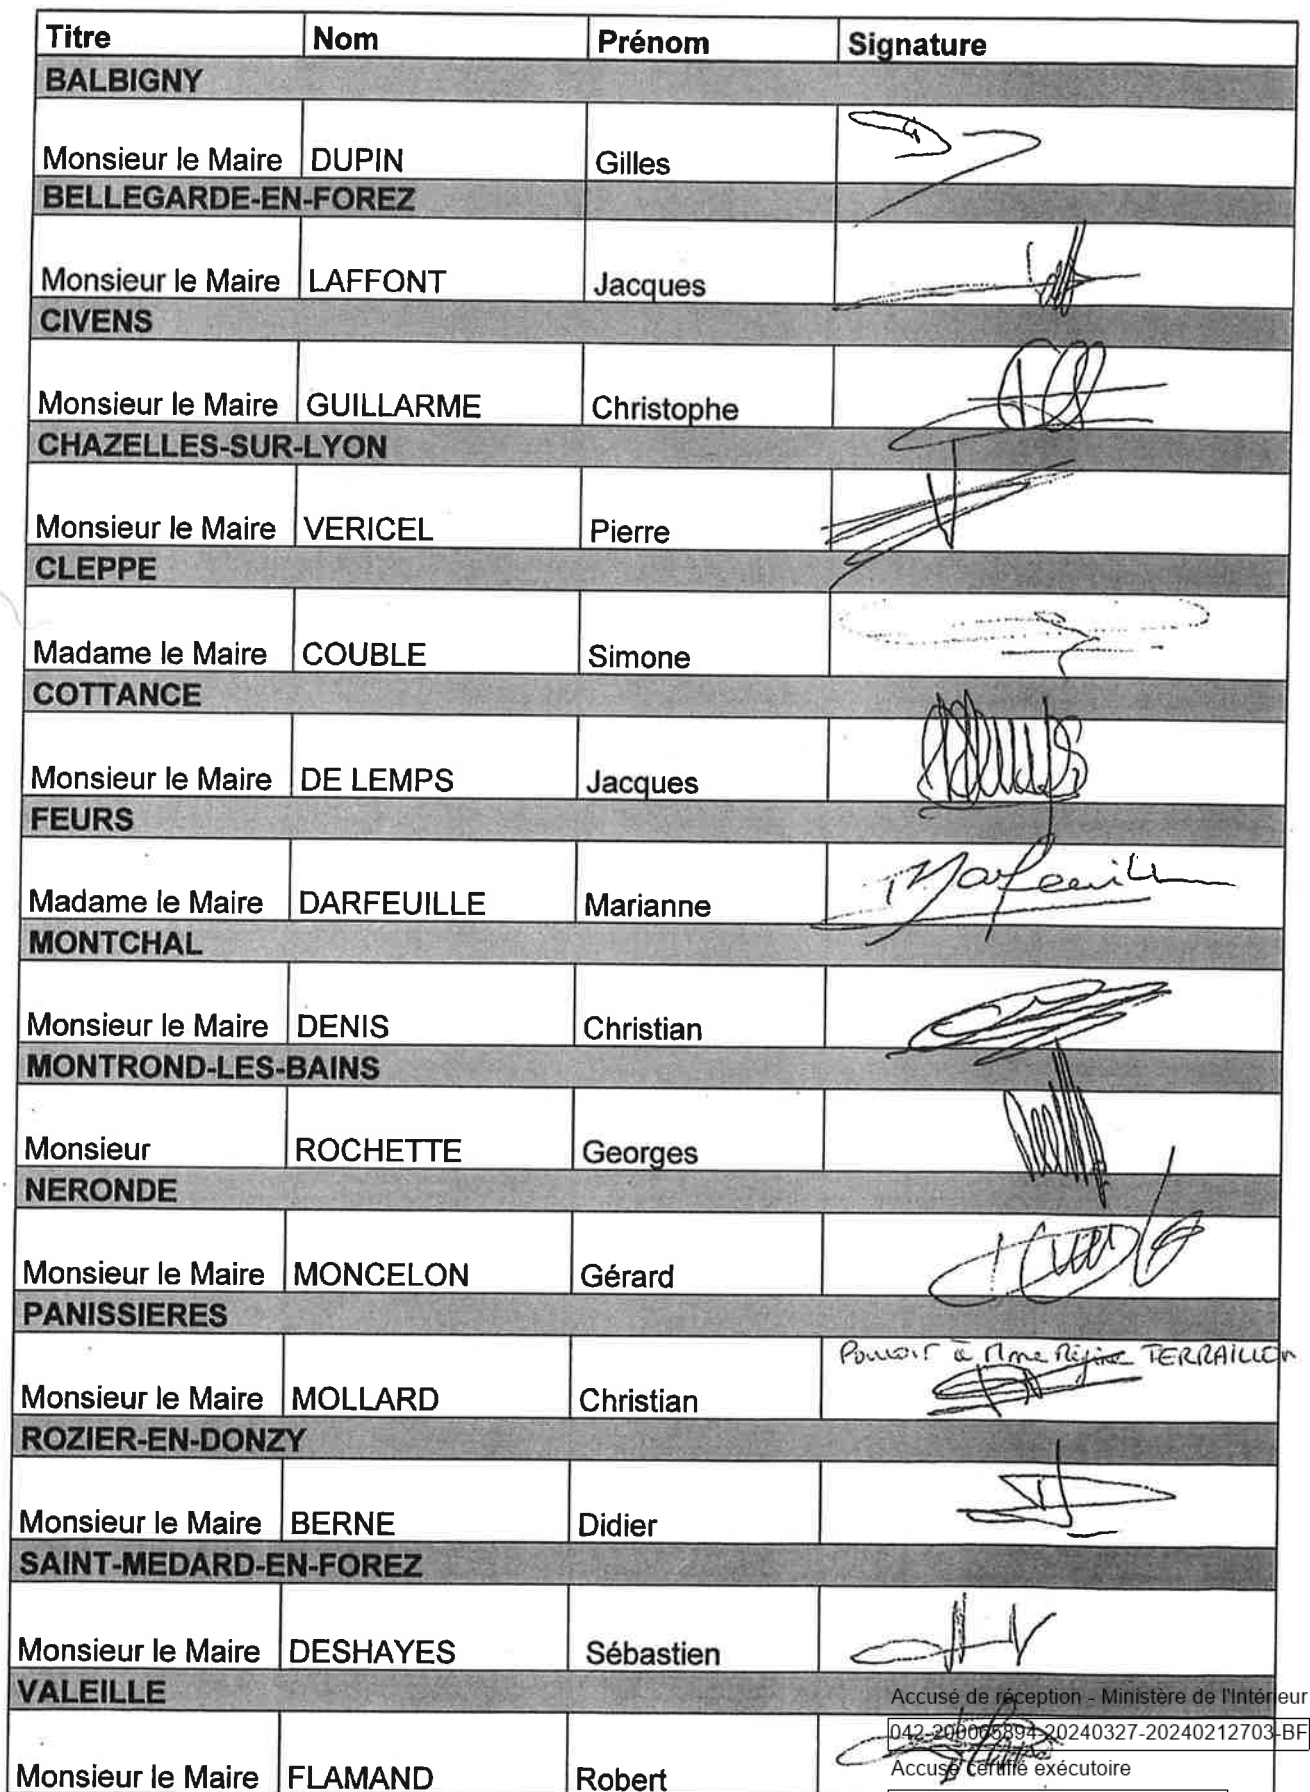 Titre Nom Prénom Signature
BALBIGNY
Monsieur le Maire DUPIN Gilles
BELLEGARDE-EN-FOREZ
Monsieur le Maire LAFFONT Jacques
CIVENS
Monsieur le Maire GUILLARME Christophe
CHAZELLES-SUR-LYON
Monsieur le Maire VERICEL Pierre
CLEPPE
Madame le Maire COUBLE Simone
COTTANCE
Monsieur le Maire DE LEMPS Jacques
FEURS
Madame le Maire DARFEUILLE Marianne
MONTCHAL
Monsieur le Maire DENIS Christian
MONTROND-LES-BAINS
Monsieur ROCHETTE Georges
NERONDE
Monsieur le Maire MONCELON Gérard
PANISSIERES
Pouvoir à Mme Régine TERRAILLON
Monsieur le Maire MOLLARD Christian
ROZIER-EN-DONZY
Monsieur le Maire BERNE Didier
SAINT-MEDARD-EN-FOREZ
Monsieur le Maire DESHAYES Sébastien
VALEILLE
Accusé de réception - Ministère de l'Intérieur
042-200065894-20240327-20240212703-BF
Accusé certifié exécutoire
Monsieur le Maire FLAMAND Robert